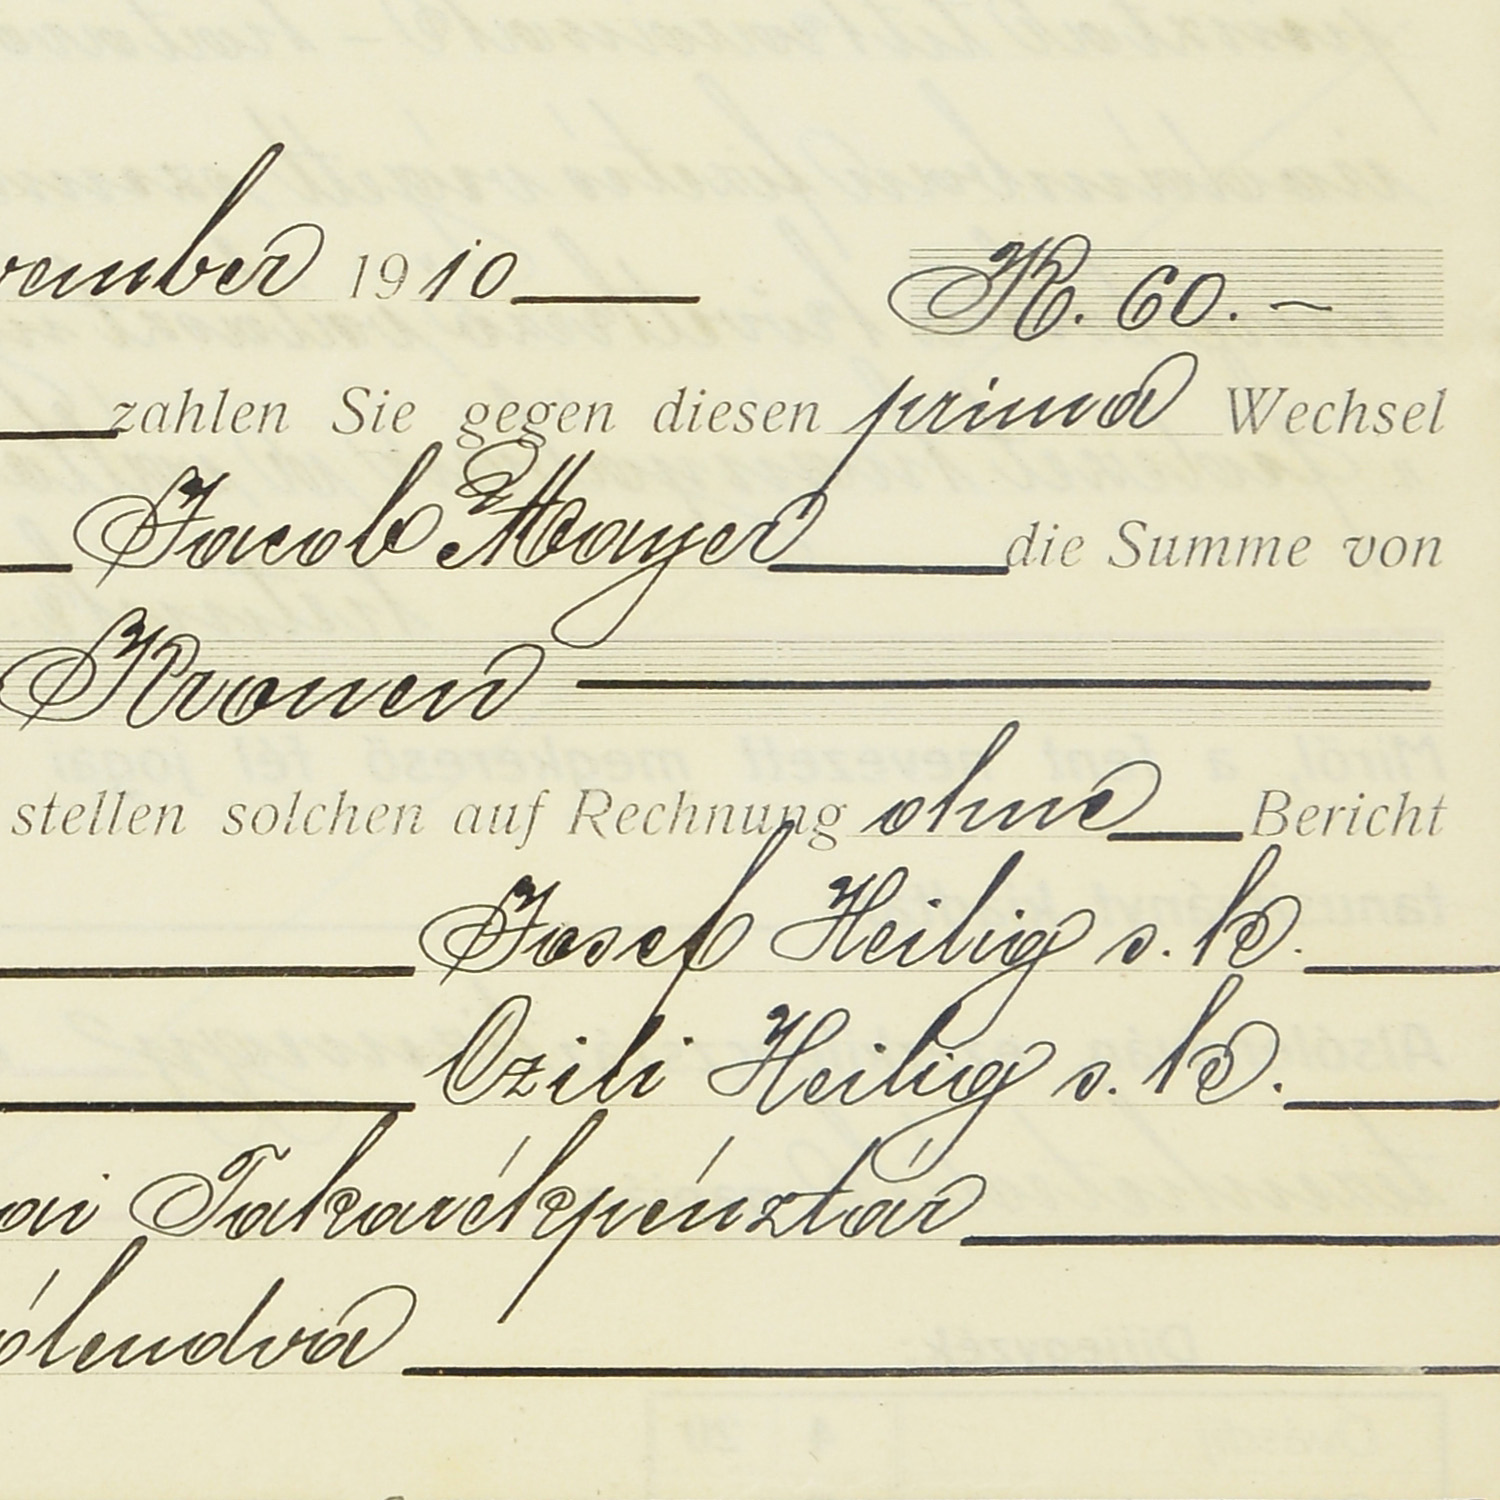 vember 1910 K. 60.–
zahlen Sie gegen diesen prima Wechsel
Jacob Mayer die Summe von
Kronen
stellen solchen auf Rechnung ohne Bericht
Josef Heilig s. k.
Czili Heilig s. k.
ai Takarékpénztár
ólendva